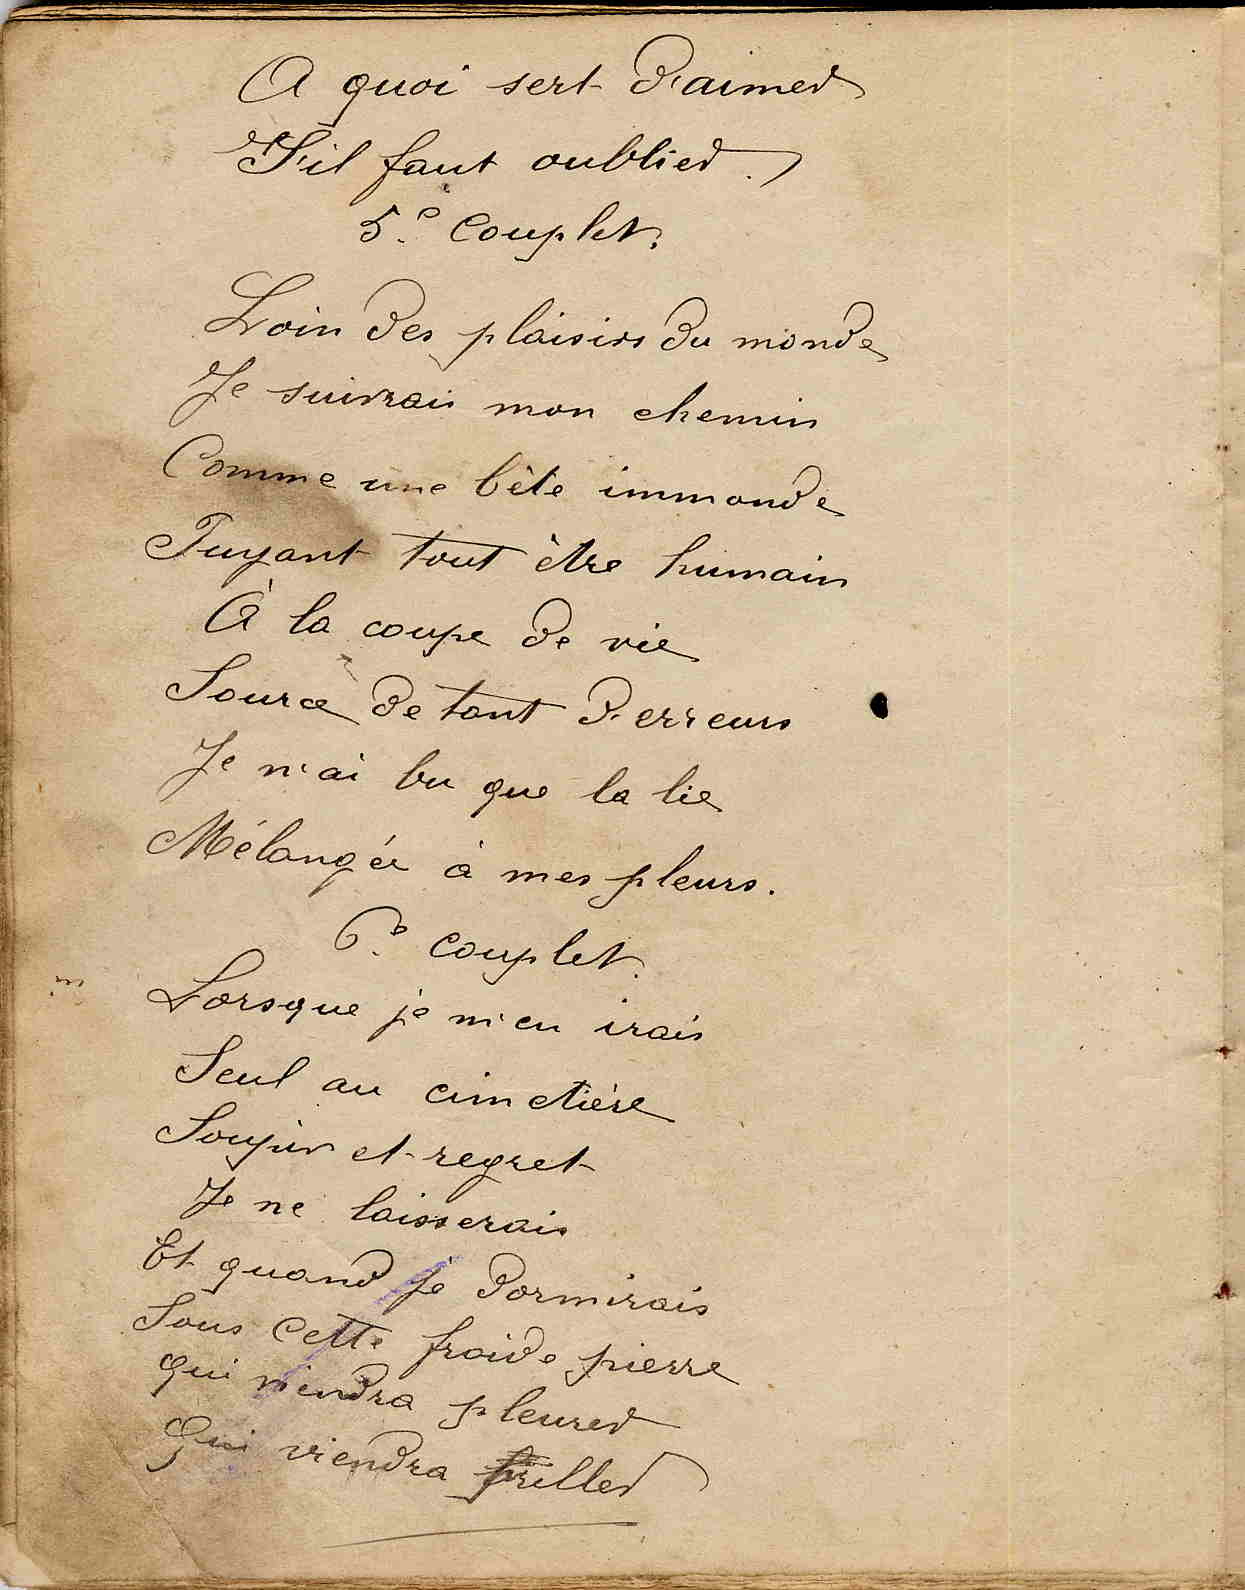 A quoi sert D'aimer
S'il faut oublier.
5.e Couplet.
Loin des plaisirs du monde
Je suivrais mon chemin
Comme une bête immonde
Fuyant tout être humain
À la coupe de vie
Source de tant D'erreurs
Je n'ai bu que la lie
Mélangée à mes pleurs.
6.e couplet.
Lorsque je m'en irais
Seul au cimetière
Soupir et regret
Je ne laisserais
Et quand je dormirais
Sous cette froide pierre
Qui viendra pleurer
Qui viendra